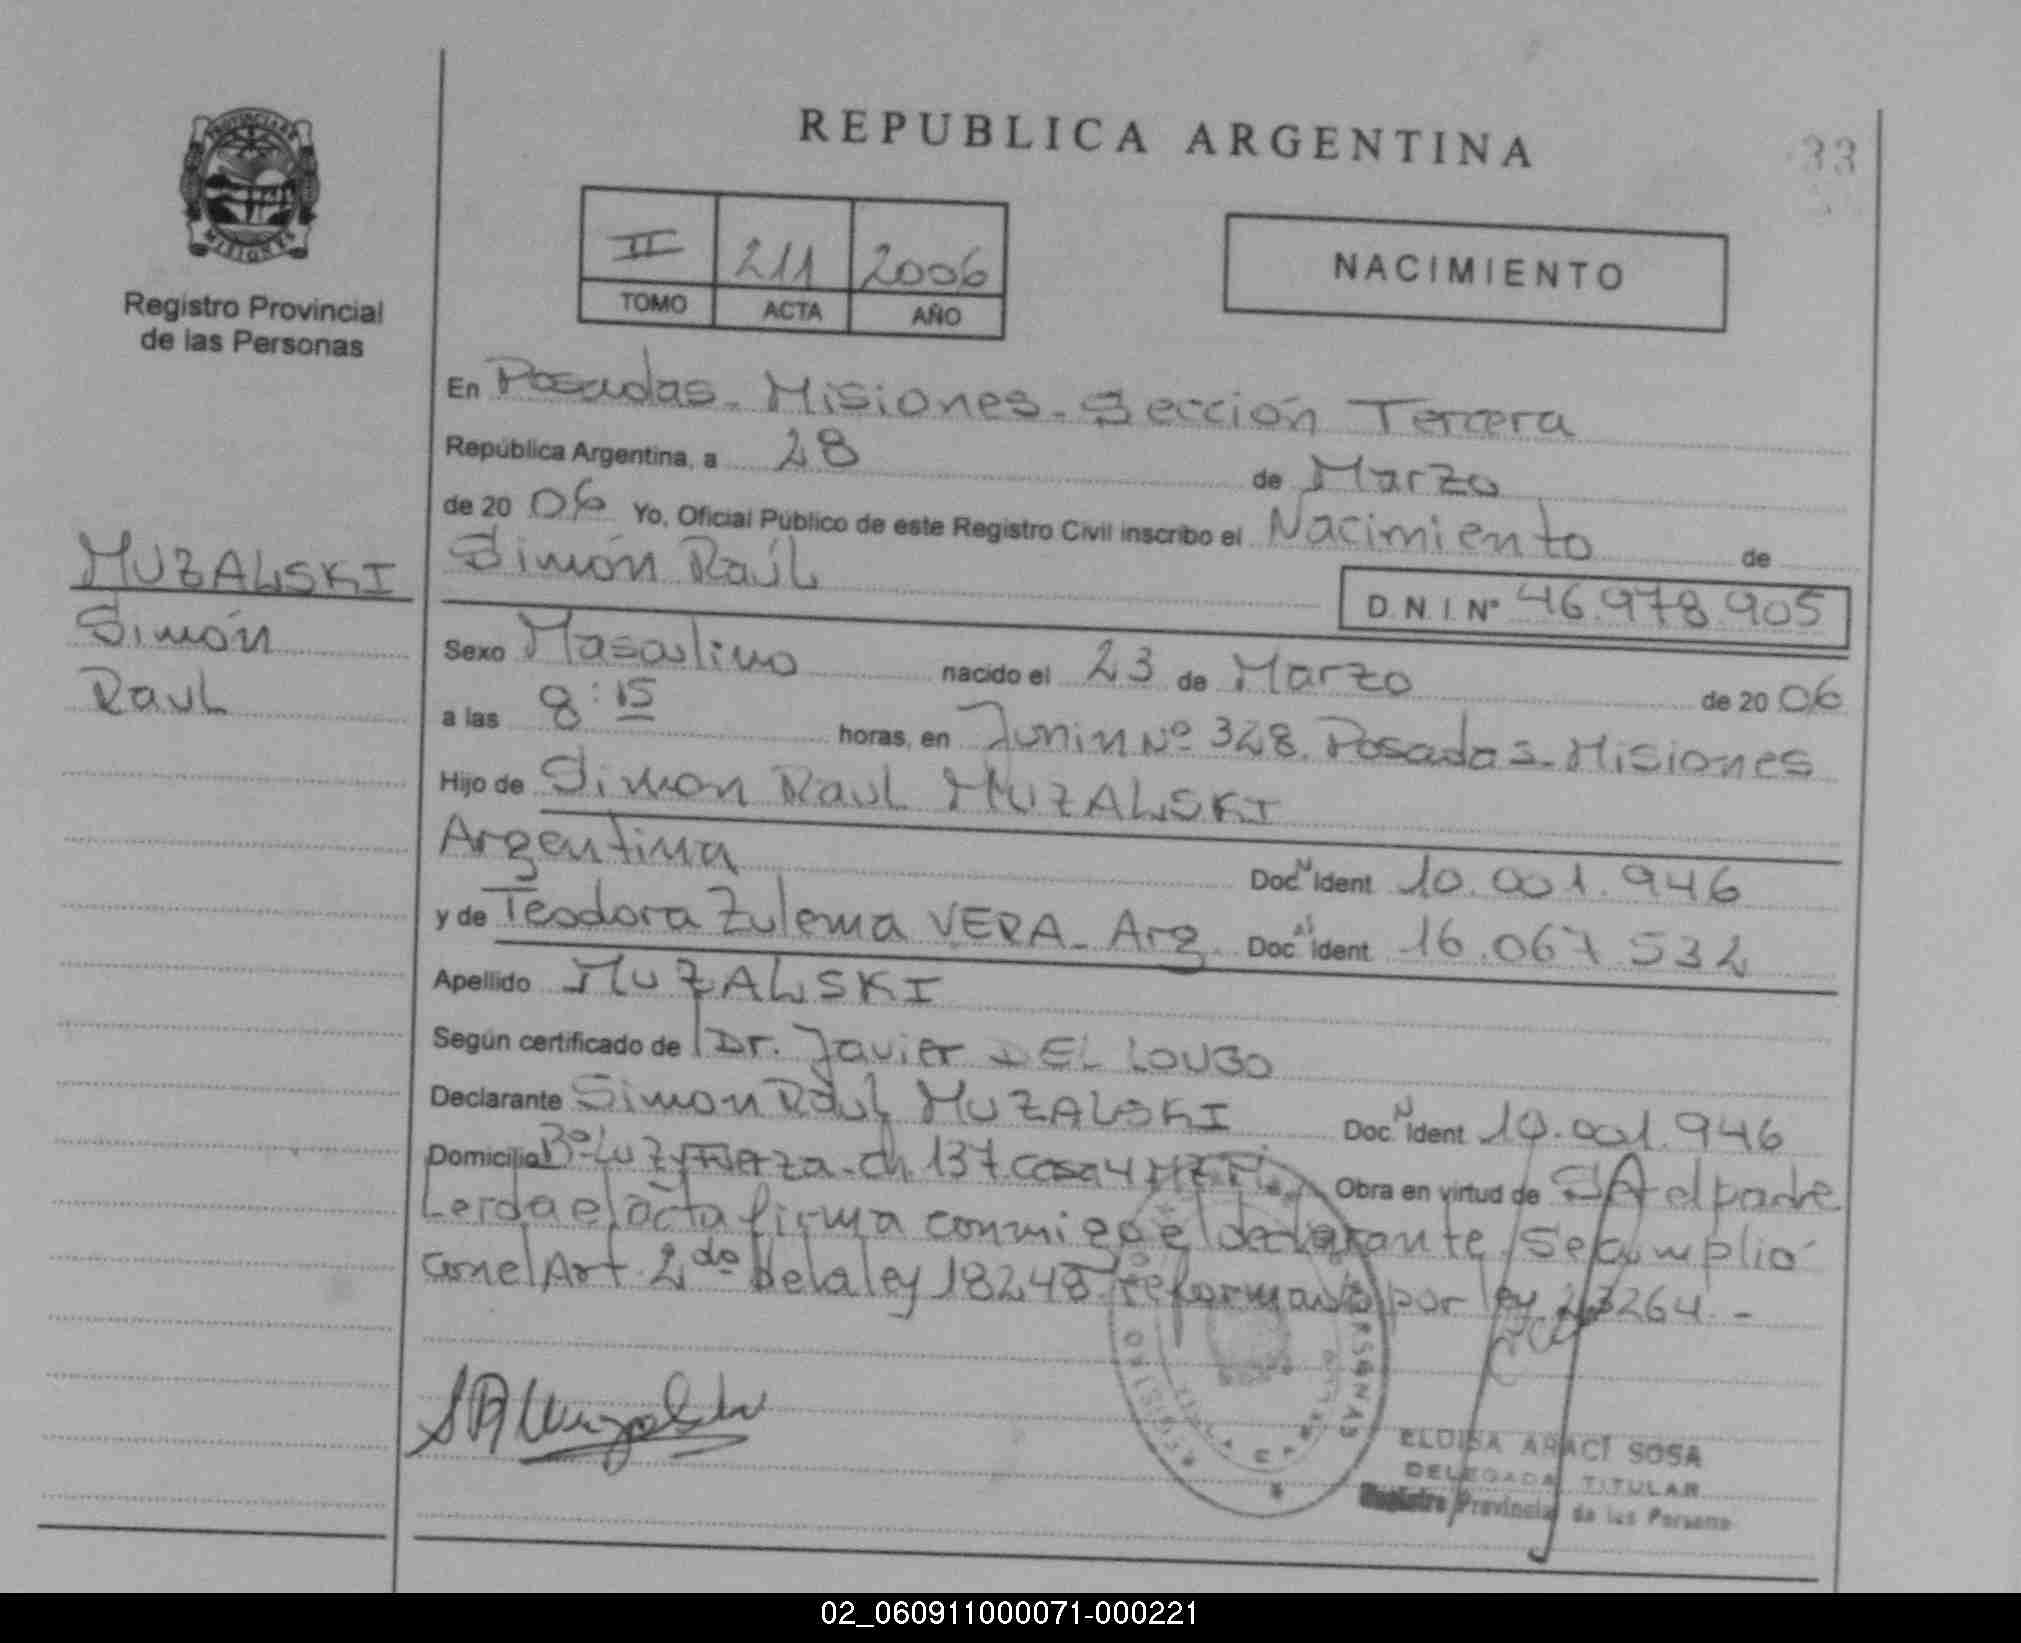 REPUBLICA ARGENTINA
33
PROVINCIA DE
MISIONES
Registro Provincial
de las Personas
II 211 2006
TOMO ACTA AÑO
NACIMIENTO
MUZALSKI
Simón
Raul
En Posadas - Misiones - Sección Tercera
República Argentina, a 28 de Marzo
de 20 06 Yo, Oficial Público de este Registro Civil inscribo el Nacimiento de
Simón Raúl
D.N.I. Nº 46.978.905
Sexo Masculino nacido el 23 de Marzo de 20 06
a las 8:15 horas, en Junin Nº 328. Posadas - Misiones
Hijo de Simon Raul MUZALSKI
Argentina Doc. N Ident 10.001.946
y de Teodora Zulema VERA - Arg. Doc. N Ident 16.067.532
Apellido MUZALSKI
Según certificado de Dr. Javier DEL LOUGO
Declarante Simon Raul MUZALSKI Doc. N Ident 10.001.946
Domicilio Bº Luz y Fuerza - Ch 137 Casa 4 Obra en virtud de del padre
Leida el acta firma conmigo el declarante. Se cumplio
con el Art. 2do de la ley 18248 reformado por ley 23264. -
ELOISA ARACI SOSA
DELEGADA TITULAR
Registro Provincial de las Persona
02_060911000071-000221